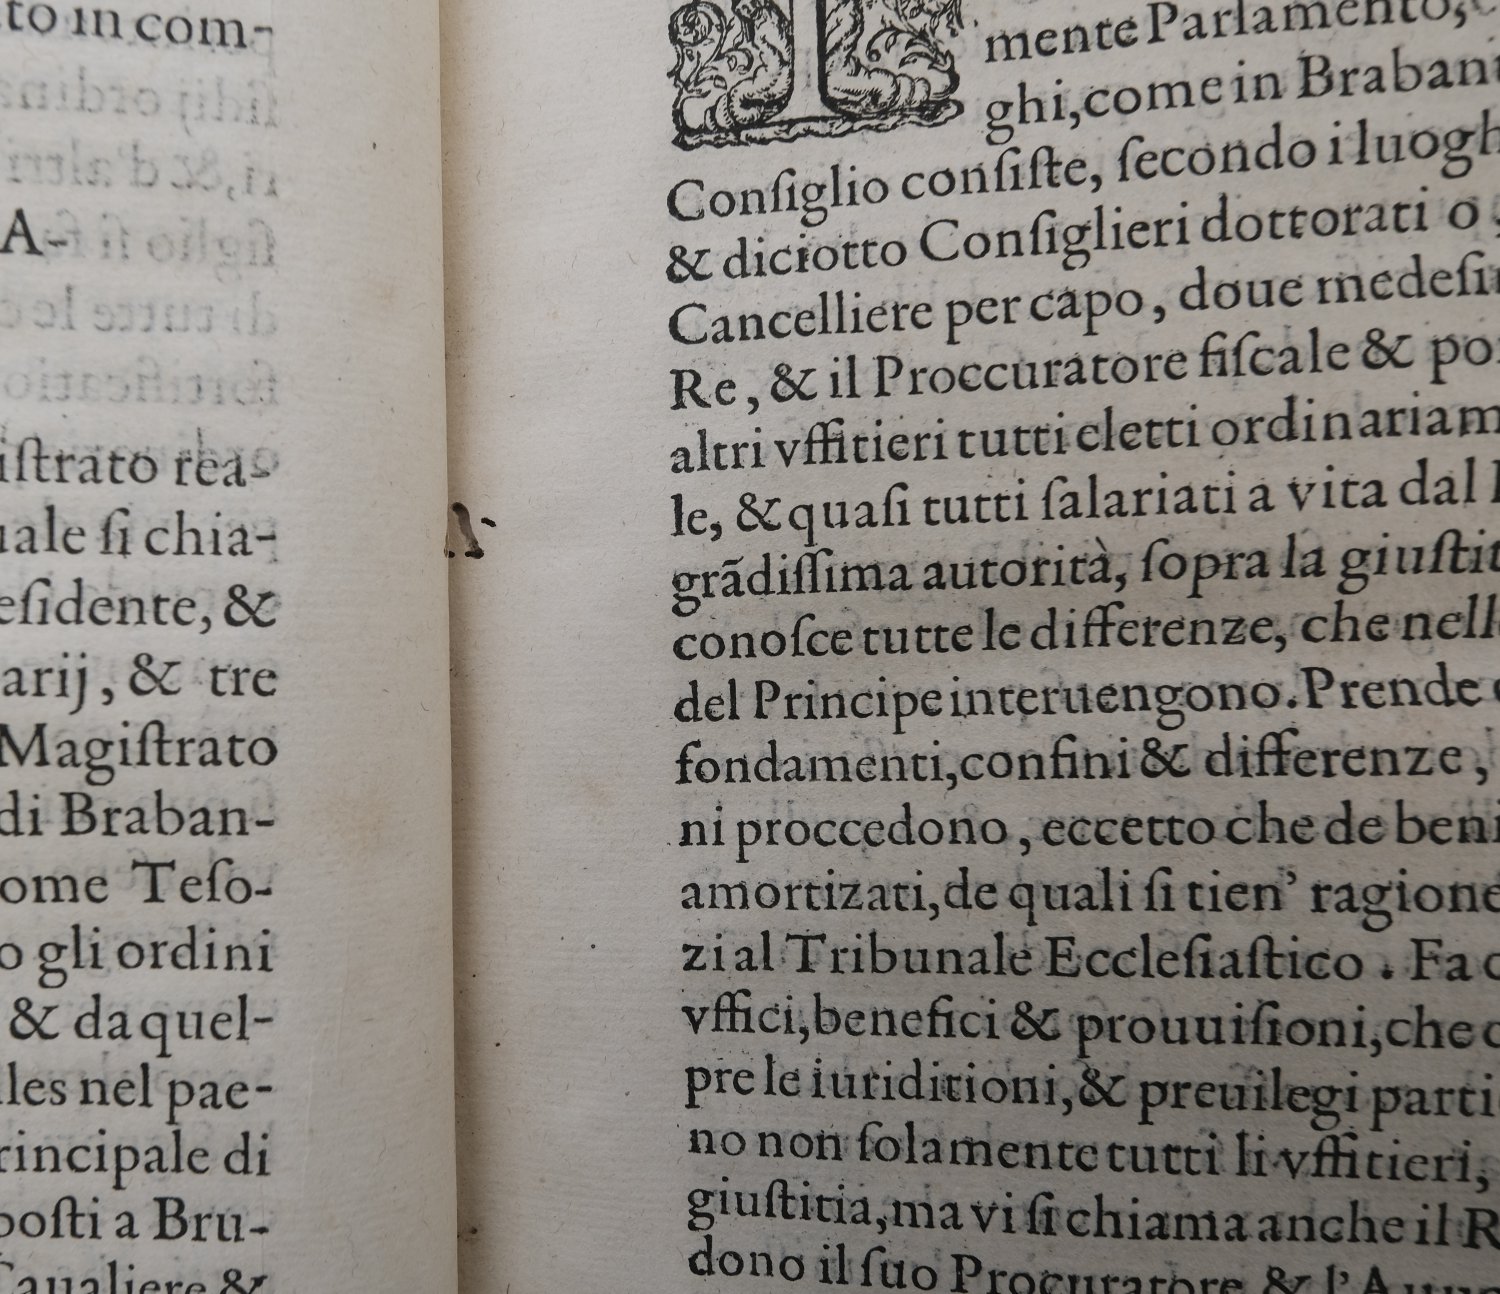 to in com-
A-
istrato rea-
uale ſi chia-
eſidente, &
arij, & tre
Magiſtrato
di Braban-
ome Teſo-
o gli ordini
& da quel-
lles nel pae-
rincipale di
poſti a Bru-
Caualiere &
mente Parlamento,
ghi, come in Braban
Conſiglio conſiſte, ſecondo i luogh
& diciotto Conſiglieri dottorati o
Cancelliere per capo, doue medeſi
Re, & il Proccuratore fiſcale & po
altri vffitieri tutti eletti ordinariam
le, & quaſi tutti ſalariati a vita dal
grãdiſſima autorità, ſopra la giuſtit
conoſce tutte le differenze, che nell
del Principe interuengono. Prende
fondamenti, confini & differenze,
ni proccedono, eccetto che de beni
amortizati, de quali ſi tien' ragione
zi al Tribunale Eccleſiaſtico. Fa
vffici, benefici & prouuiſioni, che
pre le iuriditioni, & preuilegi parti
no non ſolamente tutti li vffitieri,
giuſtitia, ma vi ſi chiama anche il R
dono il ſuo Procuratore & l'A